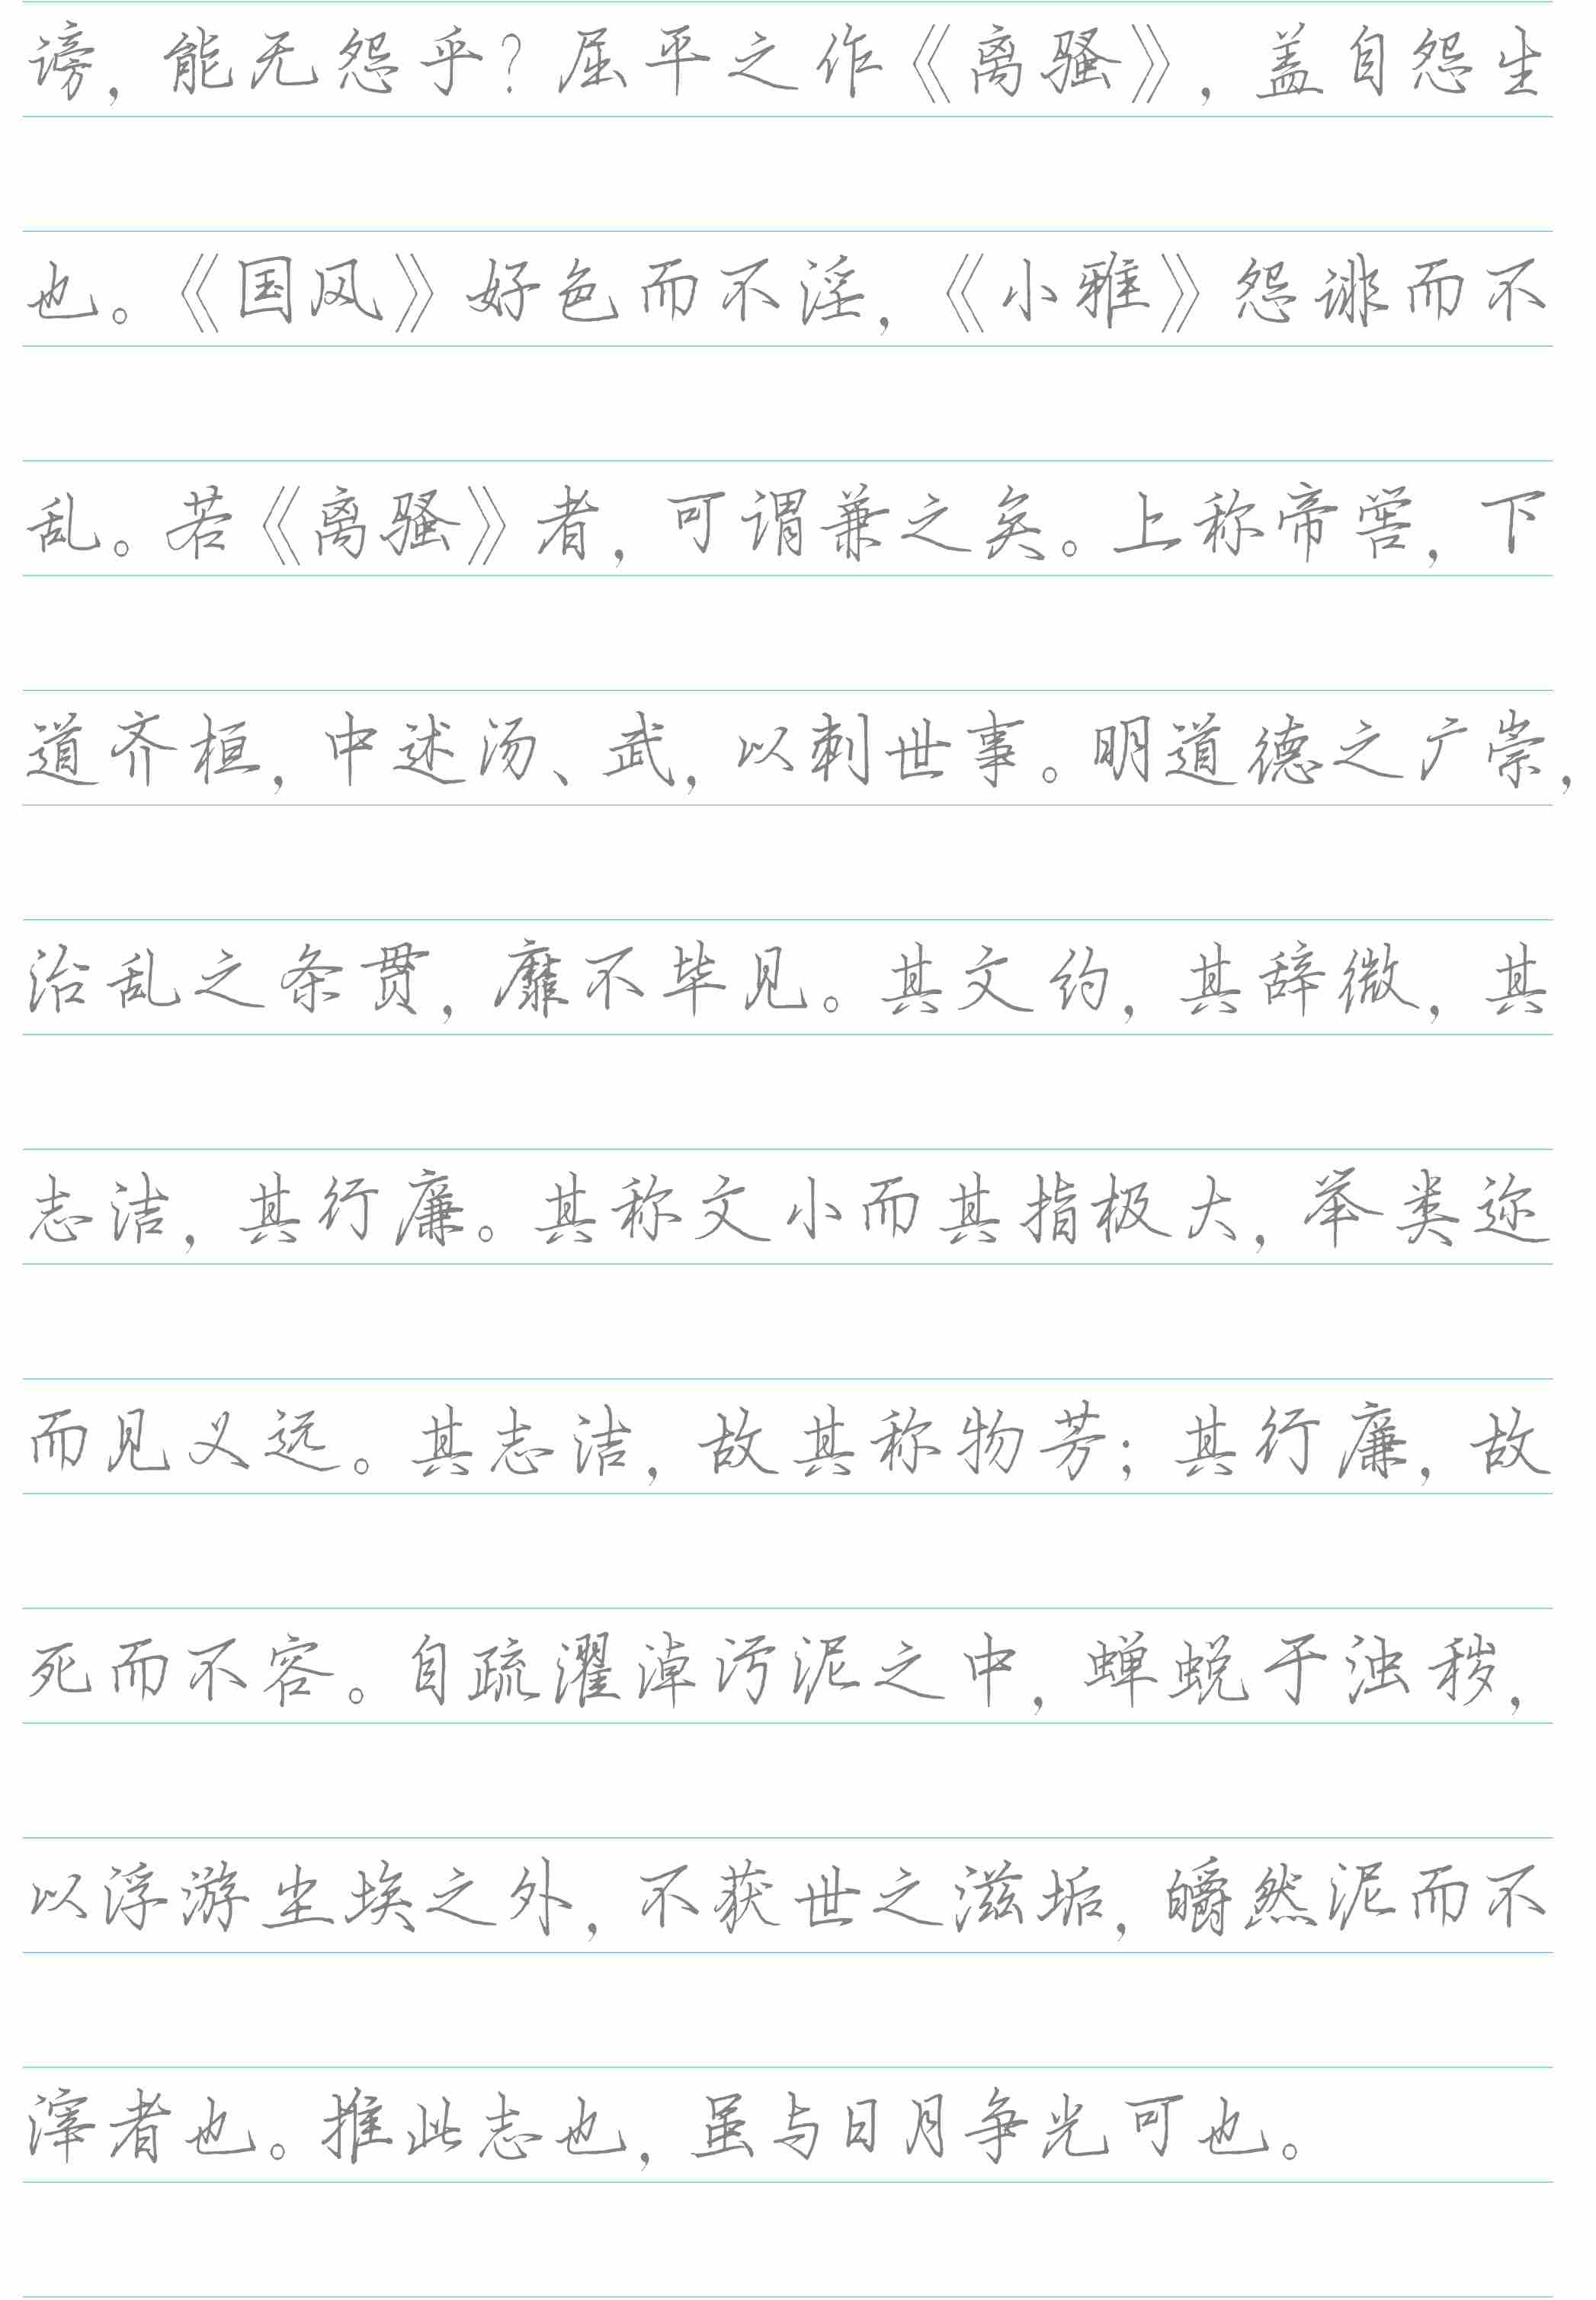 谤，能无怨乎？屈平之作《离骚》，盖自怨生
也。《国风》好色而不淫，《小雅》怨诽而不
乱。若《离骚》者，可谓兼之矣。上称帝喾，下
道齐桓，中述汤、武，以刺世事。明道德之广崇，
治乱之条贯，靡不毕见。其文约，其辞微，其
志洁，其行廉。其称文小而其指极大，举类迩
而见义远。其志洁，故其称物芳；其行廉，故
死而不容。自疏濯淖污泥之中，蝉蜕于浊秽，
以浮游尘埃之外，不获世之滋垢，皭然泥而不
滓者也。推此志也，虽与日月争光可也。